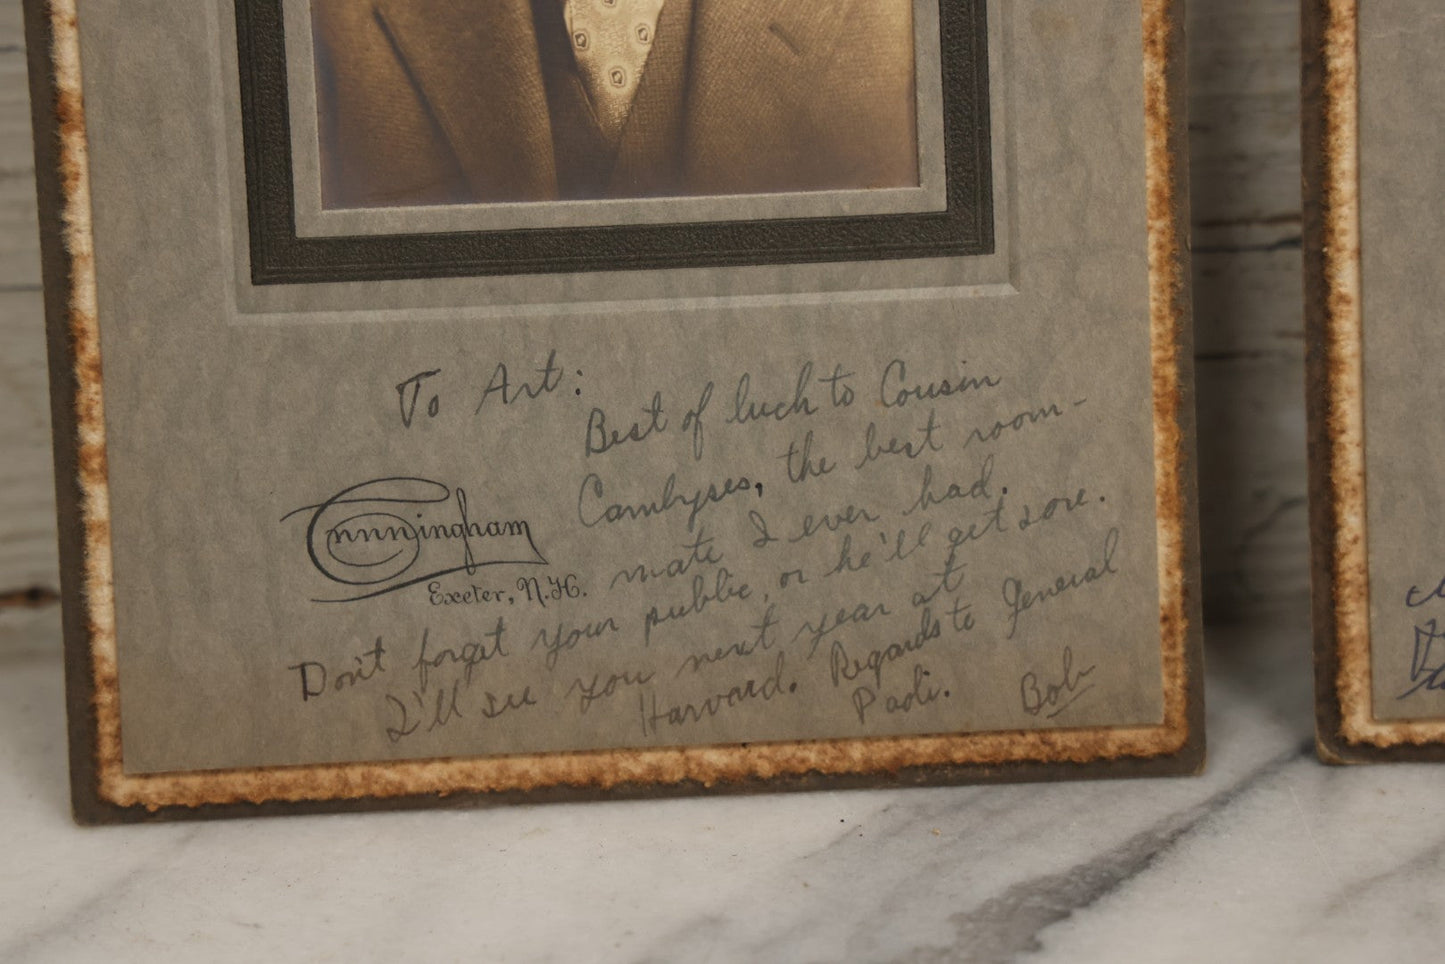 To Art:
Best of luck to Cousin
Cambyses, the best room-
mate I ever had.
Don't forget your public, or he'll get sore.
I'll see you next year at
Harvard. Regards to General
Paoli.
Bob
Cunningham
Exeter, N.H.